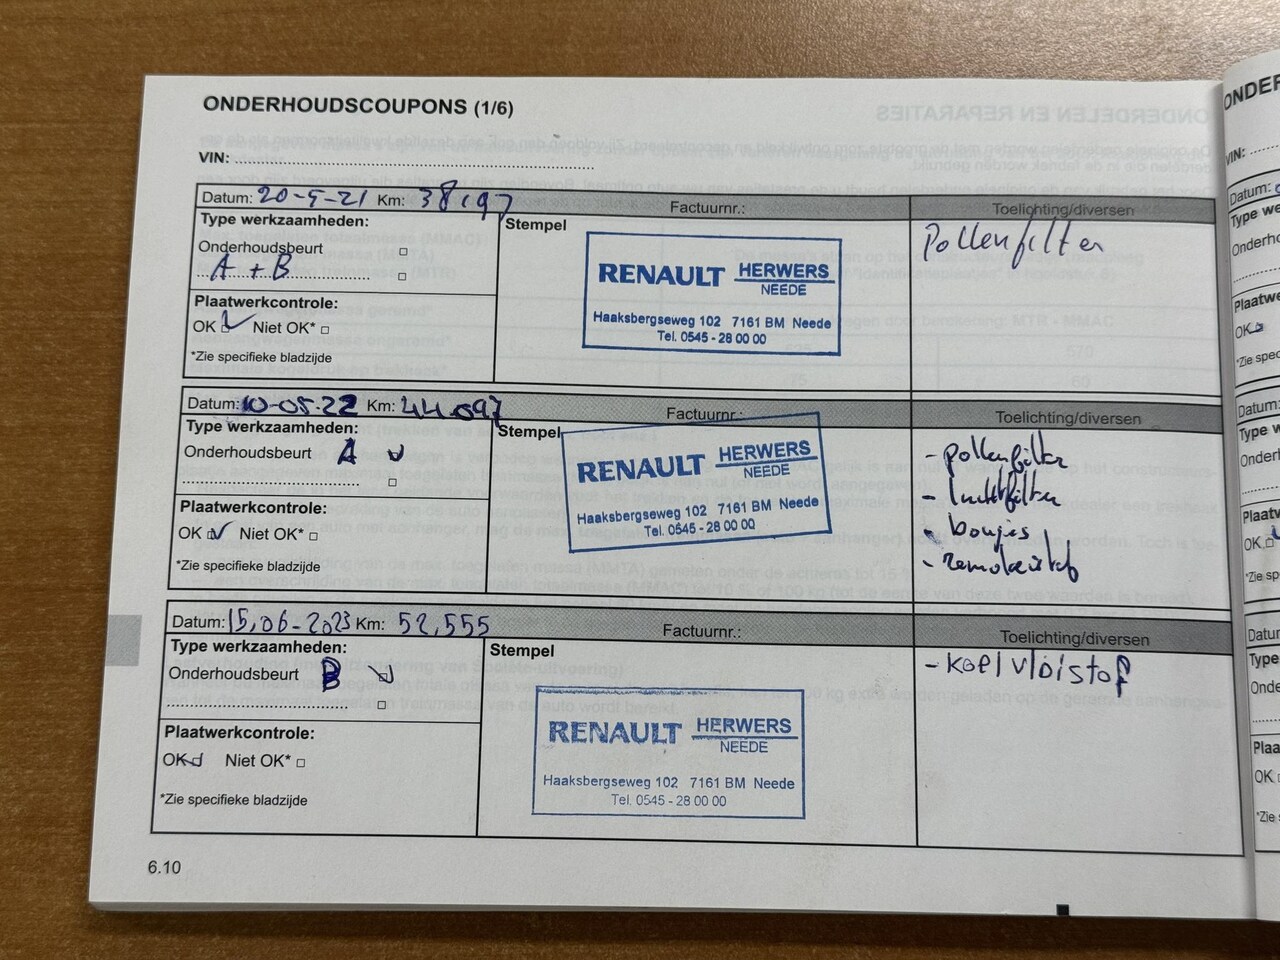 ONDERHOUDSCOUPONS (1/6)
VIN:
Datum: 20-5-21 Km: 38197 Factuurnr.: Toelichting/diversen
Type werkzaamheden: Stempel
Onderhoudsbeurt
A + B
Plaatwerkcontrole:
OK Niet OK*
*Zie specifieke bladzijde
RENAULT HERWERS
NEEDE
Haaksbergseweg 102 7161 BM Neede
Tel. 0545 - 28 00 00
Pollenfilter
Datum: 10-05-22 Km: 44.097 Factuurnr.: Toelichting/diversen
Type werkzaamheden: Stempel
Onderhoudsbeurt A
Plaatwerkcontrole:
OK Niet OK*
*Zie specifieke bladzijde
RENAULT HERWERS
NEEDE
Haaksbergseweg 102 7161 BM Neede
Tel. 0545 - 28 00 00
- pollenfilter
- luchtfilter
- bougies
- remvloeistof
Datum: 15,06-2023 Km: 52,555 Factuurnr.: Toelichting/diversen
Type werkzaamheden: Stempel
Onderhoudsbeurt B
Plaatwerkcontrole:
OK Niet OK*
*Zie specifieke bladzijde
RENAULT HERWERS
NEEDE
Haaksbergseweg 102 7161 BM Neede
Tel. 0545 - 28 00 00
- koelvloistof
6.10